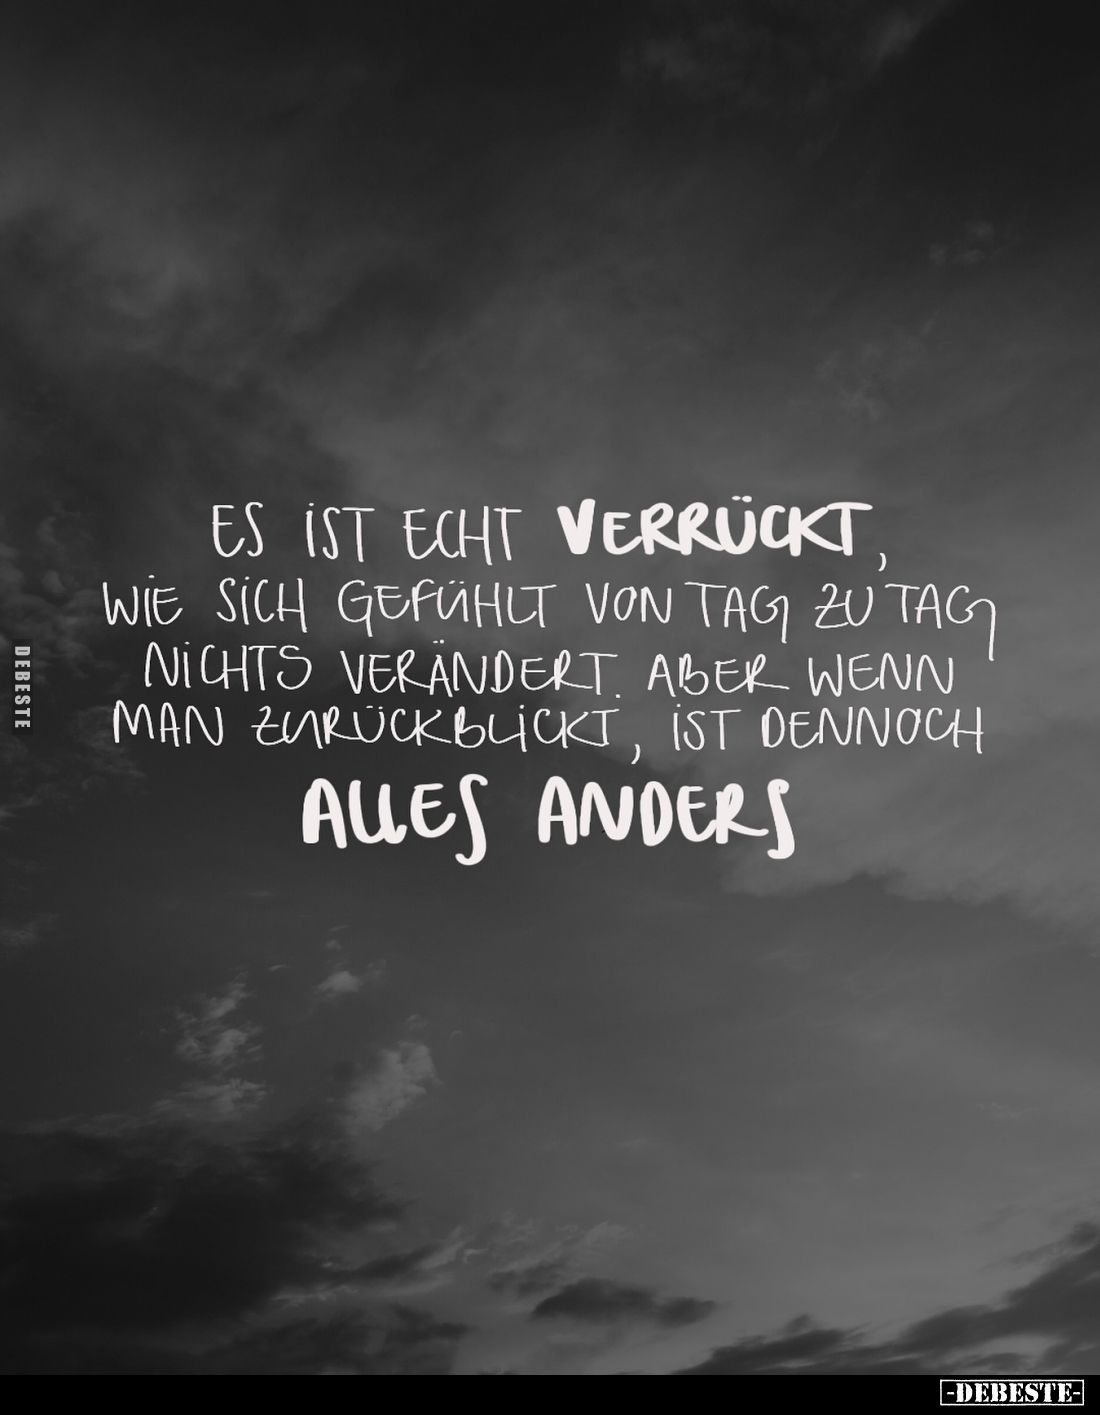 ES IST ECHT VERRÜCKT,
WIE SICH GEFÜHLT VON TAG ZU TAG
NICHTS VERÄNDERT. ABER WENN
MAN ZURÜCKBLICKT, IST DENNOCH
ALLES ANDERS
DEBESTE
-DEBESTE-